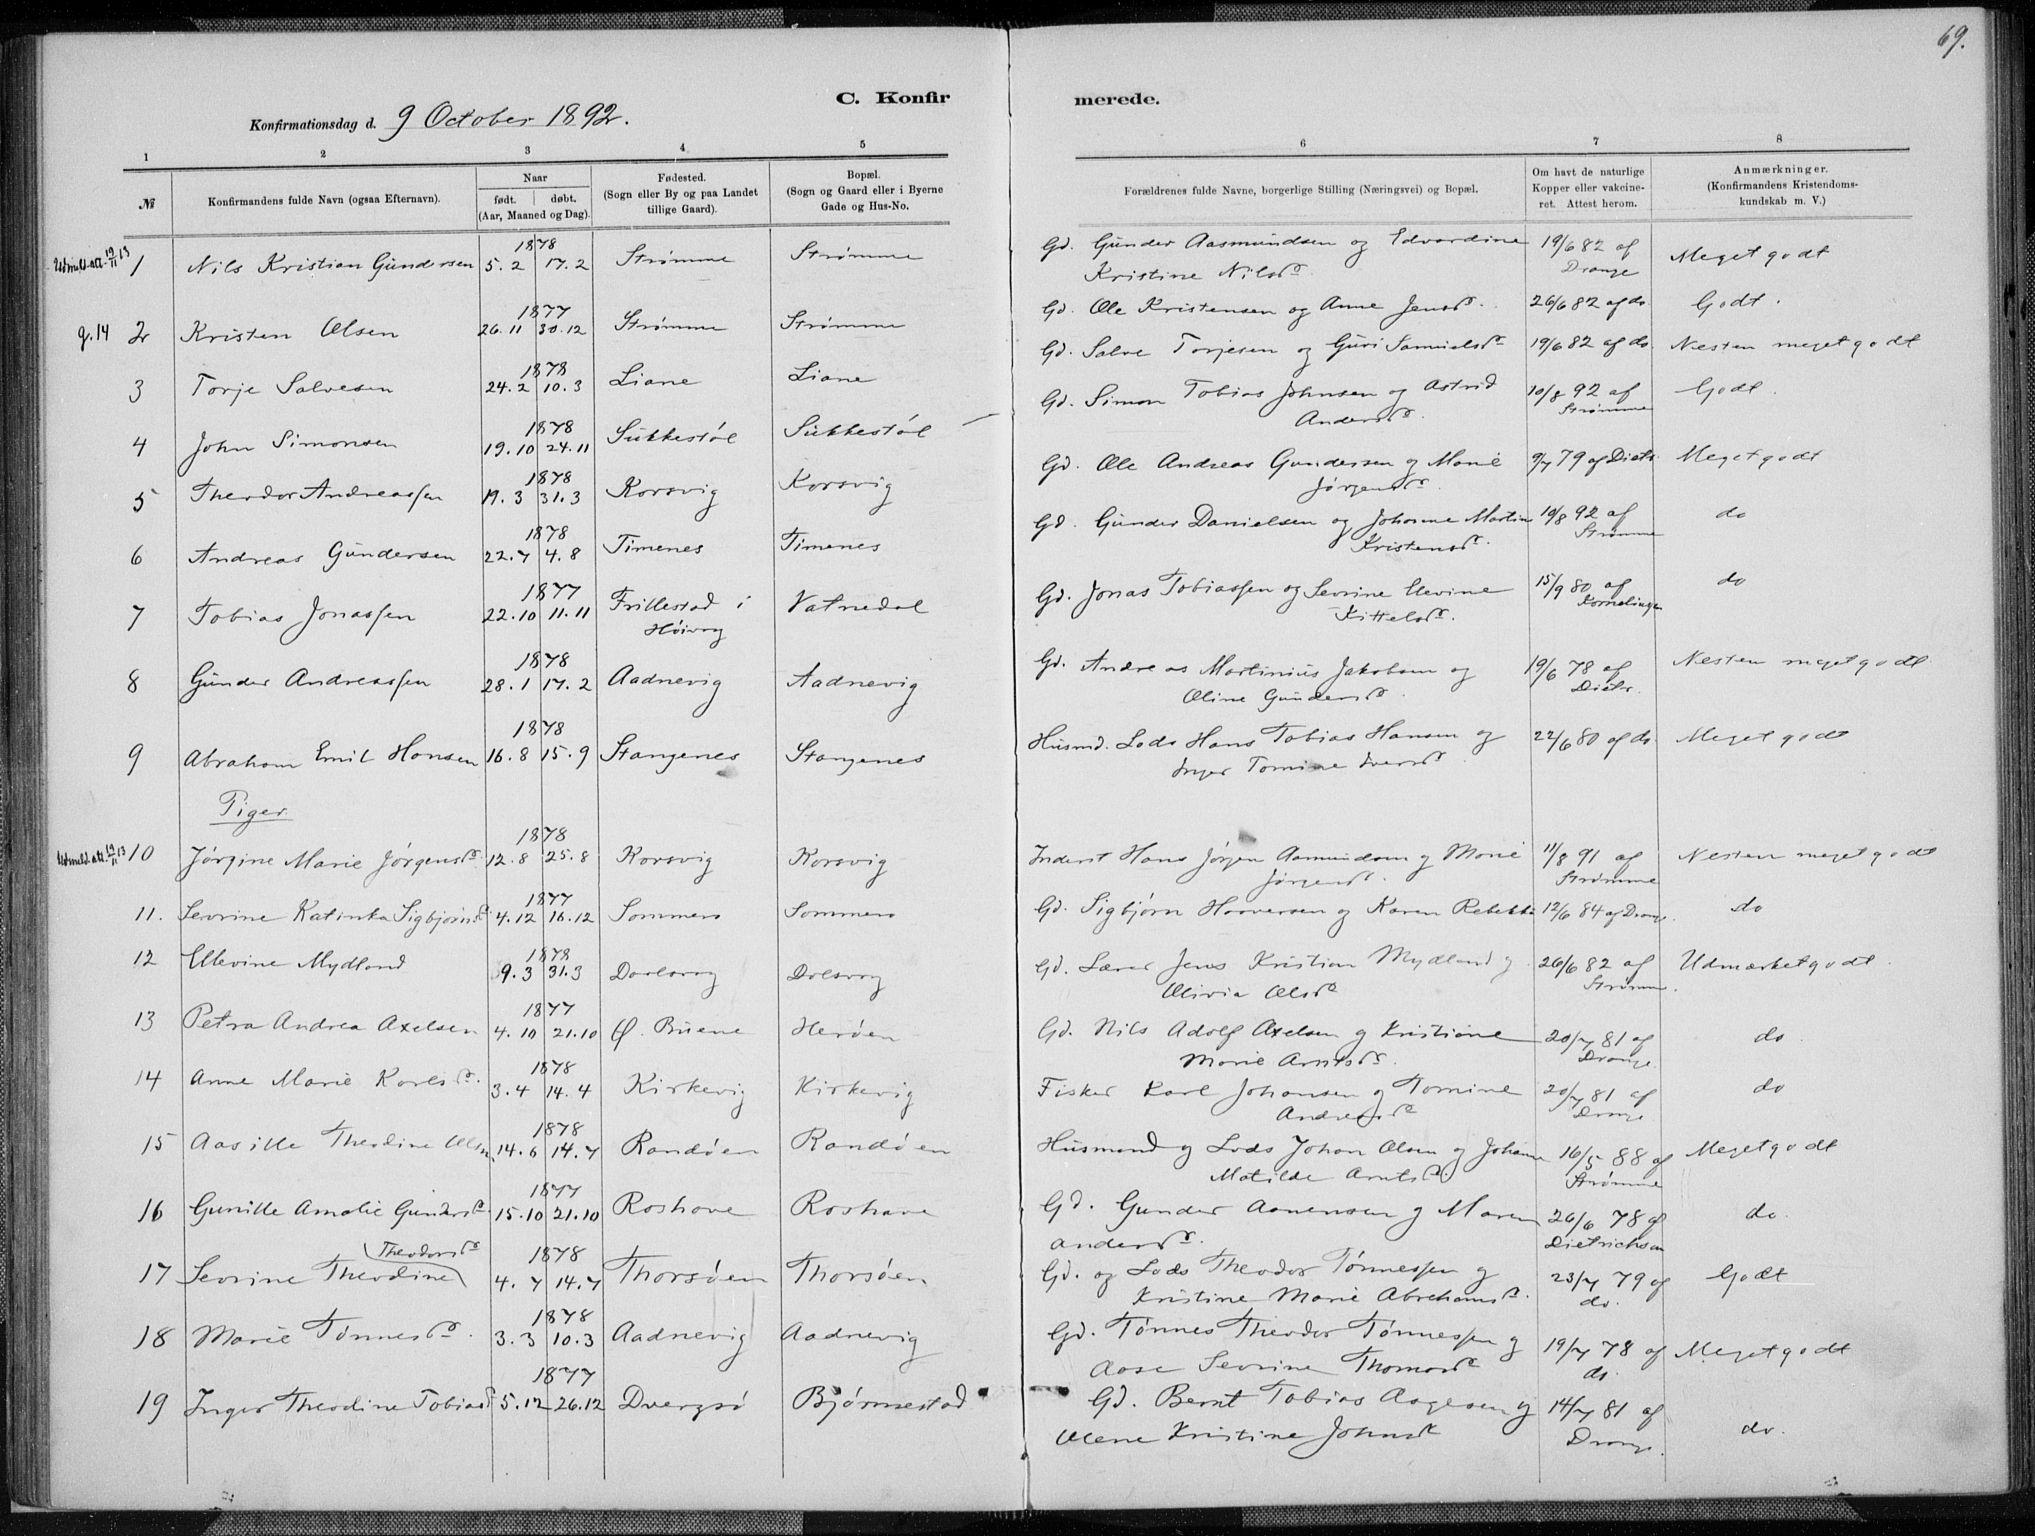 69.
C. Konfirmerede.
Konfirmationsdag d. 9 October 1892.
1 2 3 4 5 6 7 8
№
Konfirmandens fulde Navn (ogsaa Efternavn).
Naar
født. døbt.
(Aar, Maaned og Dag).
Fødested.
(Sogn eller By og paa Landet
tillige Gaard).
Bopæl.
(Sogn og Gaard eller i Byerne
Gade og Hus-No.
Forældrenes fulde Navne, borgerlige Stilling (Næringsvei) og Bopæl.
Om havt de naturlige
Kopper eller vakcine-
ret. Attest herom.
Anmærkninger.
(Konfirmandens Kristendoms-
kundskab m. V.)
Udmeld. att. 19/11 13 1 Nils Kristian Gundersen 1878 5.2 17.2 Strømme Strømme Gd. Gunder Aasmundsen og Edvardine
Kristine Nilsd. 19/6 82 af Drange Meget godt
g.14 2 Kristen Olsen 1877 26.11 30.12 Strømme Strømme Gd. Ole Kristensen og Anne Jensd. 26/6 82 af do Godt.
3 Torje Salvesen 1878 24.2 10.3 Liane Liane Gd. Salve Torjesen og Guri Samuelsd. 19/6 82 af do Nesten meget godt
4 John Simonsen 1878 19.10 24.11 Sukkestøl Sukkestøl Gd. Simon Tobias Johnsen og Astrid
Andersd. 10/8 92 af Strømme Godt.
5 Theodor Andreassen 1878 19.3 31.3 Korsvig Korsvig Gd. Ole Andreas Gundersen og Marie
Jørgensd. 9/7 79 af Dietr. Meget godt
6 Andreas Gundersen 1878 22.7 4.8 Timenes Timenes Gd. Gunder Danielsen og Johanne Martin
Kristensd. 10/8 92 af Strømme do
7 Tobias Jonassen 1877 22.10 11.11 Frillestad i
Høivog Vatnedal Gd. Jonas Tobiassen og Sevrine Elevine
Kittelsd. 15/9 80 af do
8 Gunder Andreassen 1878 28.1 17.2 Aadnevig Aadnevig Gd. Andreas Martinius Jakobsen og
Oline Gundersd. 19/6 78 af Dietr. Nesten meget godt
9 Abraham Emil Hansen 1878 16.8 15.9 Stangenes Stangenes Husmd. Lods Hans Tobias Hansen og
Inger Tomine Iversd. 22/6 80 af do. Meget godt
Piger
Udmeld. att. 19/11 13 10 Jørgine Marie Jørgensd. 1878 12.8 25.8 Korsvig Korsvig Inderst Hans Jørgen Aamundsen og Marie
Jørgensd. 11/8 91 af Strømme Nesten meget godt
11. Sevrine Katinka Sigbjørnsd. 1877 4.12 16.12 Sommero Sommero Gd. Sigbjørn Haaversen og Karen Rebekka 12/6 84 af Drange. do
12 Ellevine Mydland 1878 9.3 31.3 Dolsvog Gd. Lærer Jens Kristian Mydland og
Olivia Olsd. 26/6 82 af Strømme. Udmærket godt.
13 Petra Andrea Axelsen 1877 4.10 21.10 Ø. Buene Herøen Gd. Nils Adolf Axelsen og Kristiane
Marie Arntsd. 20/7 81 af Drange. do
14 Anne Marie Karlsd. 1878 3.4 14.4 Kirkevig Kirkevig Fisker Karl Johansen og Tomine
Andreasd. 20/7 81 af Drange do
15 Aasille Theodine Olsen 1878 14.6 14.7 Randøen Randøen Husmand og Lods Johan Olsen og Johanne
Matilde Arntsd. 16/5 88 af Strømme Meget godt
16 Gunille Amalie Gundersd. 1877 15.10 21.10 Roshave Roshave Gd. Gunder Aanensen og Maren
Andersd. 26/6 78 af Dietrichsen do.
17 Sevrine Theodine Theodorsd. 1878 4.7 14.7 Thorsøen Thorsøen Gd. og Lods Theodor Tønnessen og
Kristine Marie Abrahamsd. 23/7 79 af do. Godt
18 Marie Tønnesd. 1878 3.3 10.3 Aadnevig Aadnevig Gd. Tønnes Theodor Tønnessen og
Aase Sevrine Thomasd. 19/7 78 af do. Meget godt
19 Inger Theodine Tobiasd. 1877 5.12 26.12 Dvergsø Bjørnestad Gd. Bernt Tobias Aagesen og
Olene Kristine Johnsd. 14/7 81 af Drange. do.